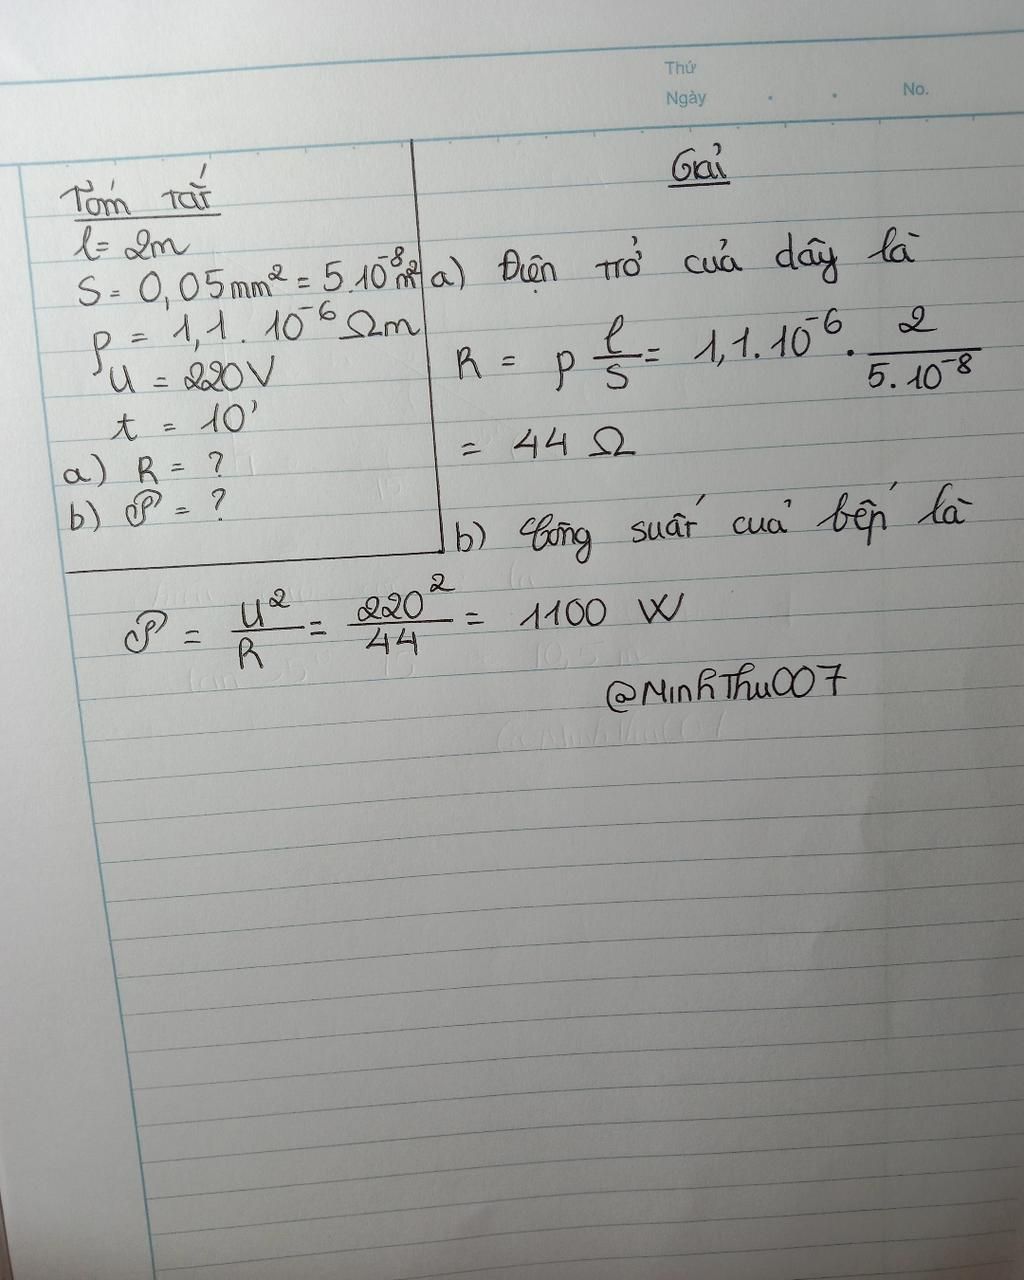 Thứ
Ngày . . No.
Tóm tắt
l = 2m
S = 0,05mm² = 5.10⁻⁸m²
ρ = 1,1.10⁻⁶ Ωm
U = 220V
t = 10'
a) R = ?
b) 𝒫 = ?
Giải
a) Điện trở của dây là
R = ρ l/S = 1,1.10⁻⁶ . 2/5.10⁻⁸
= 44 Ω
b) Công suất của bếp là
𝒫 = U²/R = 220²/44 = 1100 W
@MinhThu007